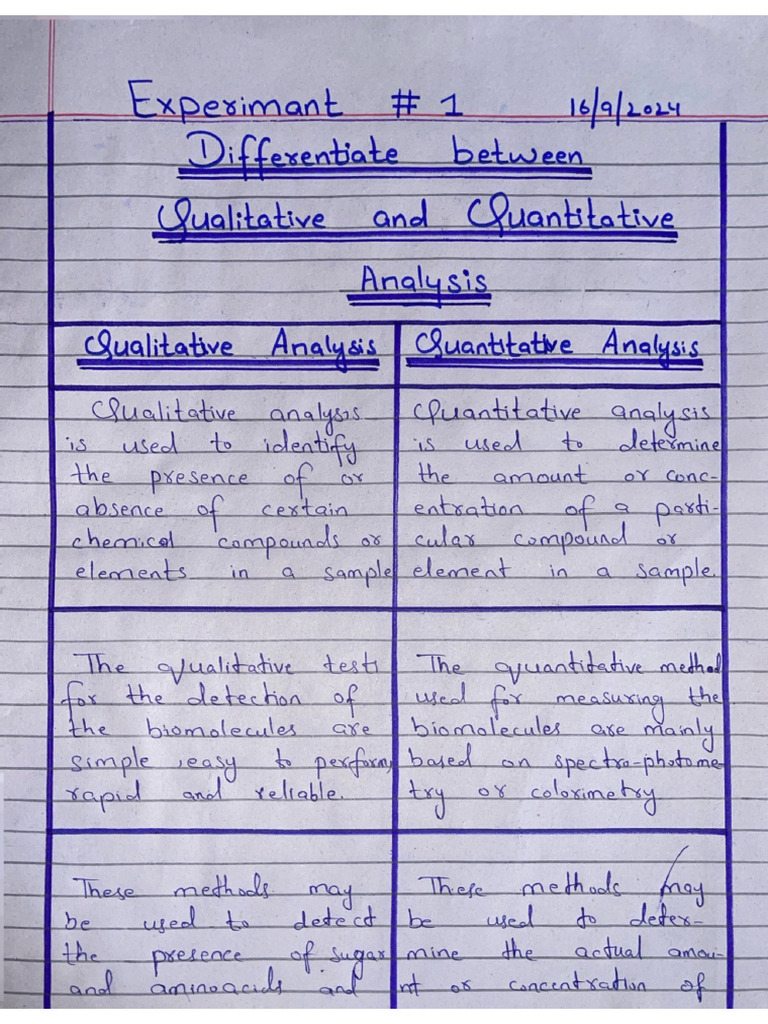 Experimant # 1 16/9/2024
Differentiate between
Qualitative and Quantitative
Analysis
Qualitative Analysis
Qualitative analysis
is used to identify
the presence of or
absence of certain
chemical compounds or
elements in a sample
The qualitative tests
for the detection of
the biomolecules are
simple, easy to perform,
rapid and reliable.
These methods may
be used to detect
the presence of sugar
and aminoacids and
Quantitative Analysis
Quantitative analysis
is used to determine
the amount or conc-
entration of a parti-
cular compound or
element in a sample.
The quantitative method
used for measuring the
biomolecules are mainly
based on spectro-photome-
try or colorimetry
These methods may
be used to deter-
mine the actual amou-
nt or concentration of